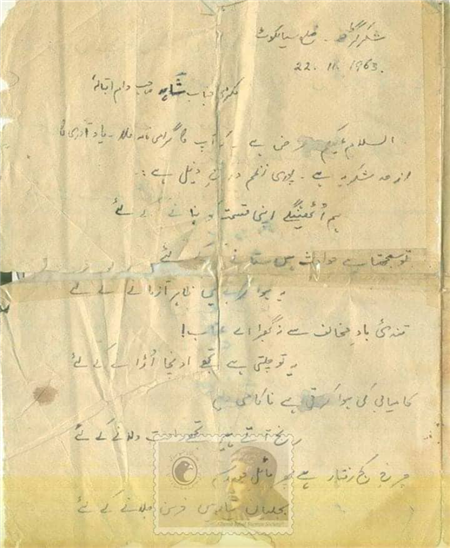 شکر گڑھ۔ ضلع سیالکوٹ
22. 11. 1963.
مکرمی جناب شاہد صاحب دام اقبالہٗ
السلام علیکم عرض ہے کہ آپ کا گرامی نامہ ملا۔ یاد آوری کا
از حد شکریہ ہے۔ پوری نظم درج ذیل ہے:۔
ہم اُٹھینگے اپنی قسمت کو بنانے کے لئے
تو سمجھتا ہے حوادث ہیں ستانے کے لئے
یہ ہوا کرتے ہیں ظاہر آزمانے کے لئے
تندیٔ بادِ مخالف سے نہ گھبرا اے عقاب!
یہ تو چلتی ہے تجھے اونچا اُڑانے کے لئے
کامیابی کی ہوا کرتی ہے ناکامی
رنج آتے ہیں تجھے راحت دلانے کے لئے
چرخِ کج رفتار ہے پھر مائلِ جور و
بجلیاں شاہد خرمن جلانے کے لئے